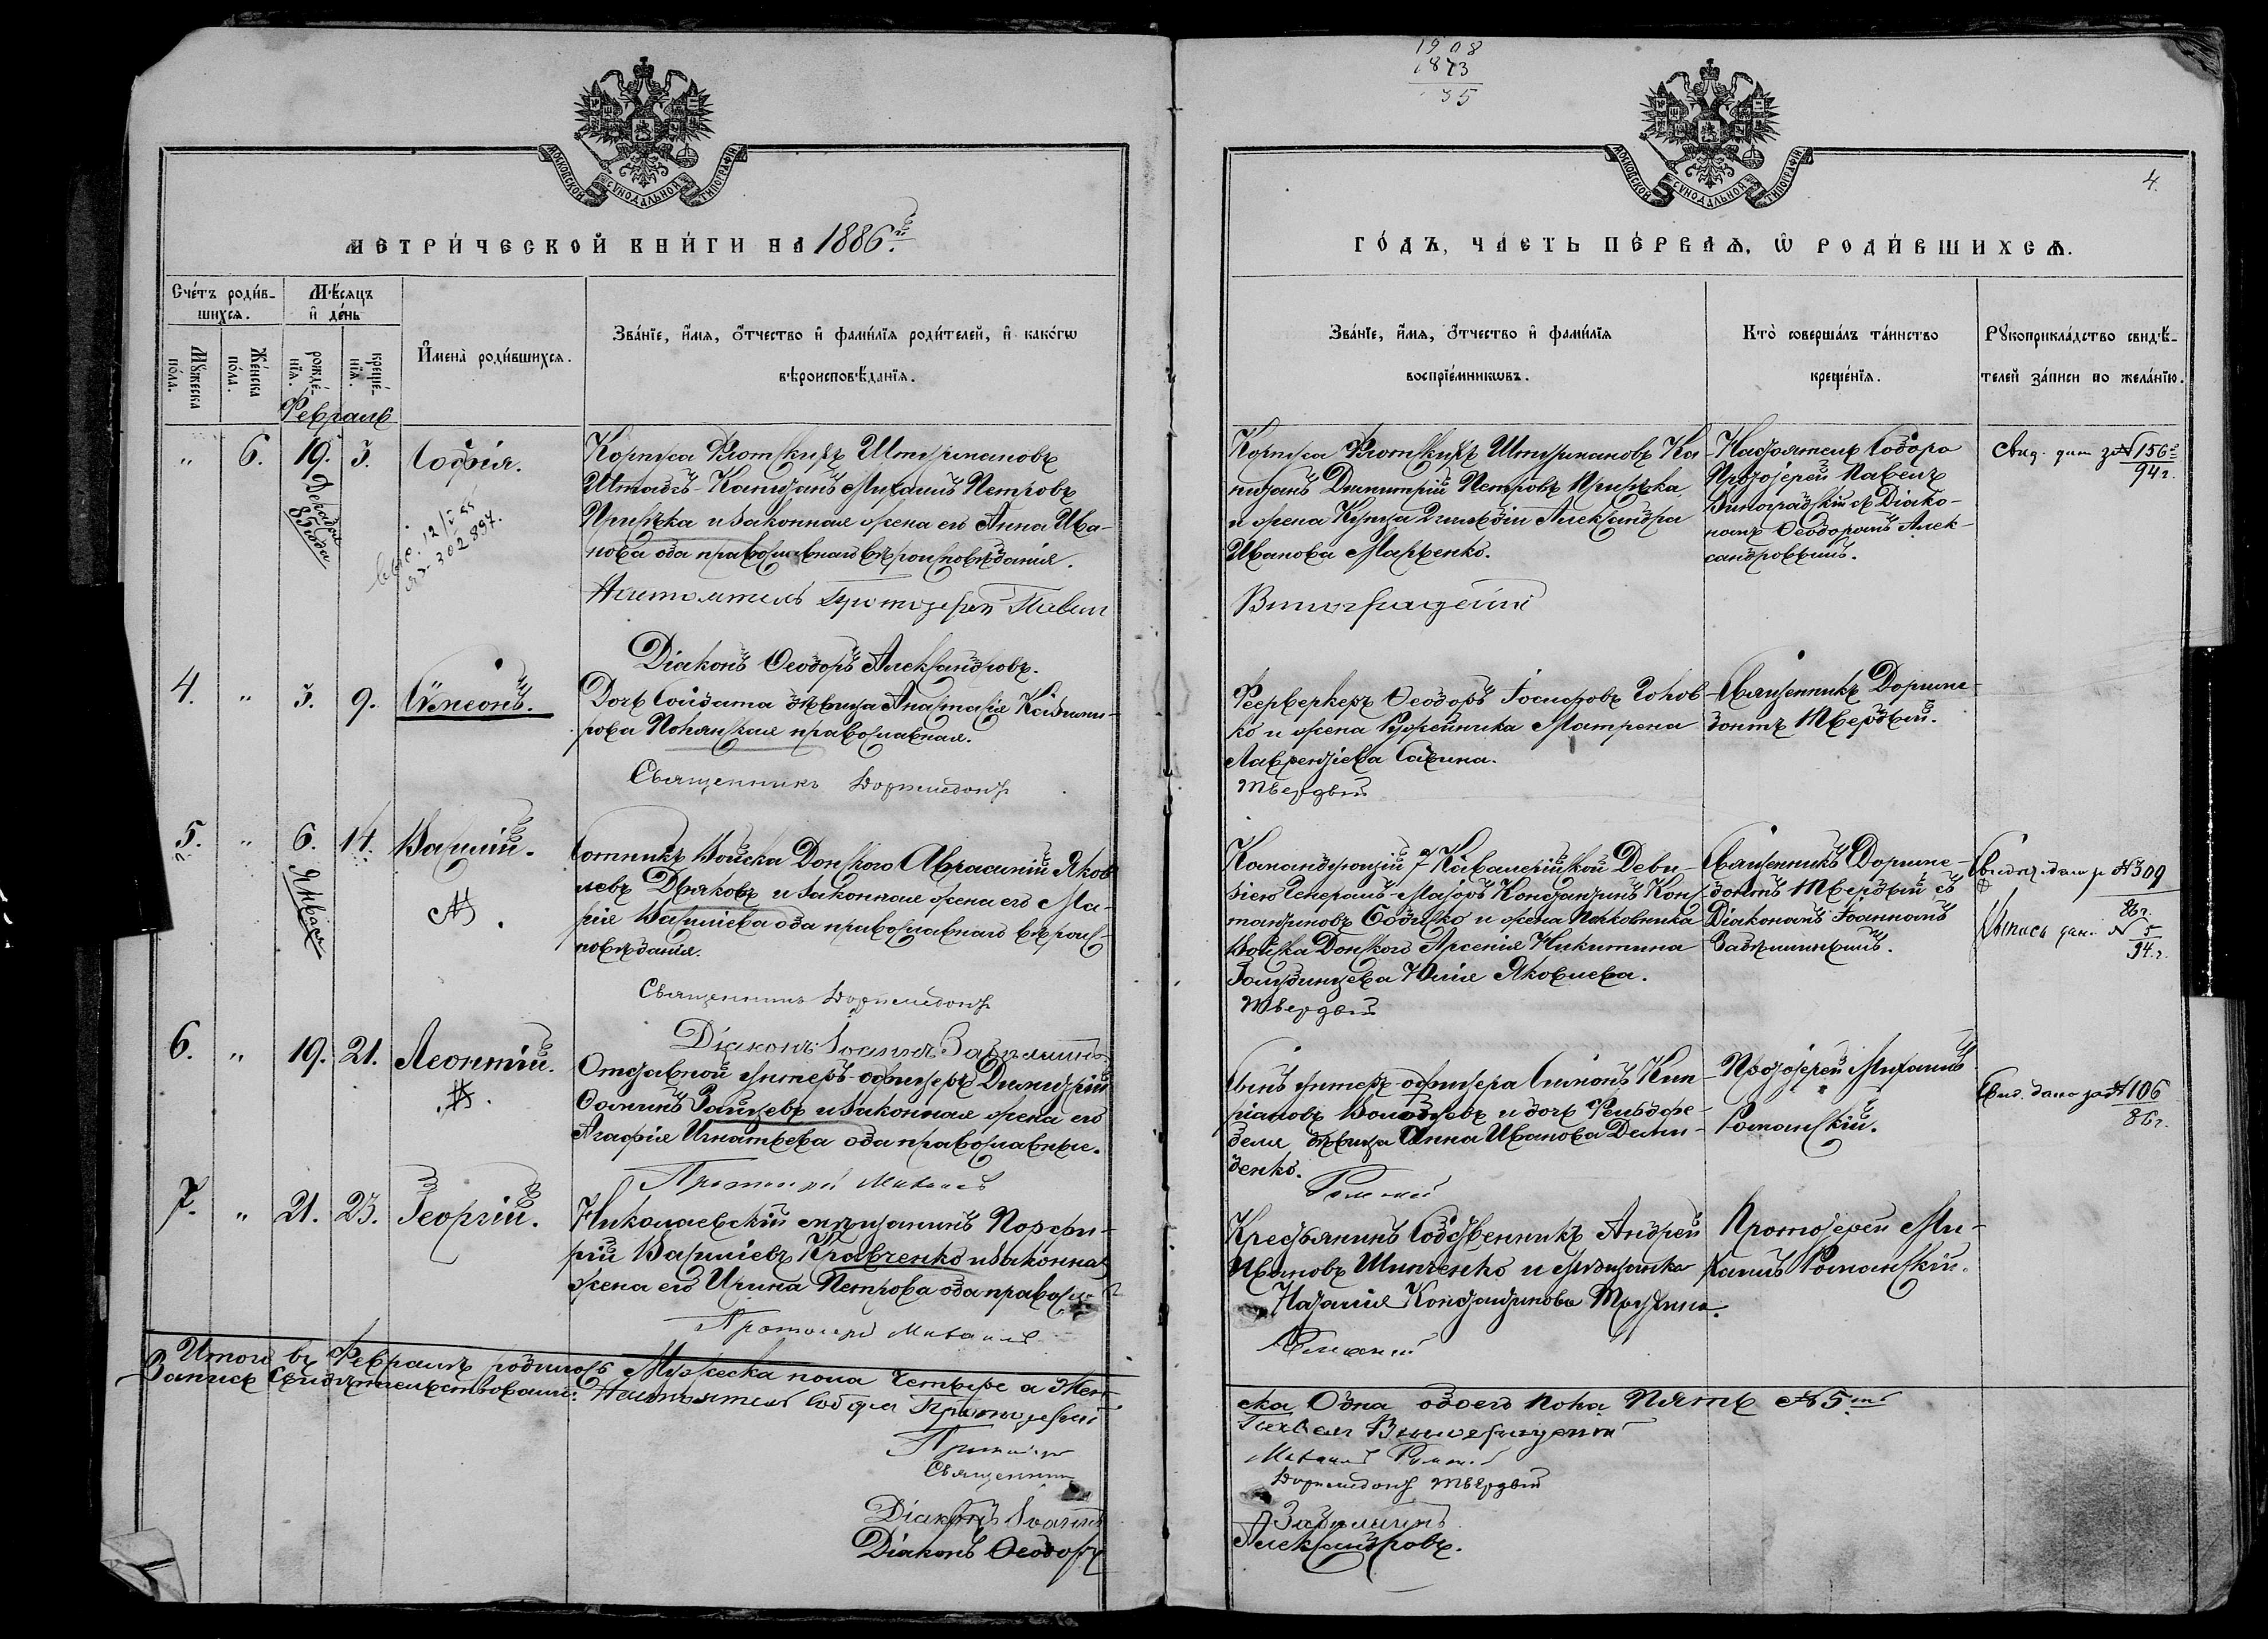 1908
1873
35
МОСКОВСКОЙ СѴНОДАЛЬНОЙ ТИПОГРАФІИ
МОСКОВСКОЙ СѴНОДАЛЬНОЙ ТИПОГРАФІИ
4.
МЕТРИ́ЧЕСКОЙ КНИ́ГИ НА 1886й
ГО́ДЪ, ЧА́СТЬ ПЕ́РВАѦ, Ѡ РОДИ́ВШИХСѦ.
Сче́тъ роди́в-
шихсѧ.
Мꙋ́жеска по́ла.
Же́нска по́ла.
Мѣ́сяцъ
и҆ де́нь
рожде́-
нїѧ.
креще́-
нїѧ.
И҆мена̀ роди́вшихсѧ.
Зва́нїе, и҆́мѧ, ѻ҆́тчество и҆ фами́лїѧ роди́телей, и҆ како́гѡ
вѣроисповѣ́данїѧ.
Зва́нїе, и҆́мѧ, ѻ҆́тчество и҆ фами́лїѧ
воспрїе́мникѡвъ.
Кто̀ соверша́лъ та́инство
креще́нїѧ.
Рꙋкоприкла́дство свидѣ́-
телей за́писи по жела́нїю.
Февраль
" 6. 19. 3. Софія.
Декабря
85 года
302897.
Корпуса Флотскихъ Штурмановъ
Штабсъ-Капитанъ Михаилъ Петровъ
Прирѣка и законная жена его Анна Ива-
нова оба православнаго вѣроисповѣданія.
Настоятель Протоіерей Павелъ
Діаконъ Ѳеодоръ Александровъ.
Корпуса Флотскихъ Штурмановъ Ка
питанъ Димитрій Петровъ Прирѣка
и жена Купца Гильдіи Александра
Иванова Марченко.
Виноградскій
Настоятель Собора
Протоіерей Павелъ
Виноградскій съ Діако-
номъ Ѳеодоромъ Алек-
сандровымъ.
Свид. дан за №156
94 г.
4. " 3. 9. Сѷмеонъ.
Дочь Солдата дѣвица Анастасія Казими-
рова Полянская православная.
Священникъ Дормидонтъ
Фейерверкеръ Ѳеодоръ Іосифовъ Голов
ко и жена Матрена
Лаврентіева Савина.
Твердый
Священникъ Дорми-
донтъ Твердый.
5. " 6. 14. Василій.
Января
Сотникъ Войска Донскаго Аврамій Яков
левъ Дьяковъ и законная жена его Ма-
рія Васильева оба православнаго вѣроис-
повѣданія.
Священникъ Дормидонтъ
Діаконъ Іоаннъ Забѣлинъ
Командующій 7й Кавалерійской Диви-
зіею Генералъ-Маіоръ Константинъ Конс
тантиновъ и жена Полковника
Войска Донскаго Арсенія Никитина
Голубинцева Юлія Яковлева.
Твердый
Священникъ Дорми-
донтъ Твердый съ
Діакономъ Іоанномъ
Забѣлинымъ.
№309
86 г.
Выпись дан. № 5
94 г.
6. " 19. 21. Леонтій.
Отставной унтеръ-офицеръ Димитрій
Ѳоминъ Зайцевъ и законная жена его
Агафія Игнатьева оба православные.
Протоіерей Михаилъ
Сынъ унтеръ-офицера Симонъ Кип
ріановъ Володуевъ и дочь Фельдфе-
беля дѣвица Анна Иванова Деми-
денко.
Романскій
Протоіерей Михаилъ
Романскій.
Свид. дано за №106
86 г.
7. " 21. 23. Георгій.
Николаевскій мѣщанинъ Порфи-
рій Васильевъ Кравченко и законная
жена его Ирина Петрова оба правосл.
Протоіерей Михаилъ
Крестьянинъ Собственникъ Андрей
Ивановъ Шинченко и мѣщанка
Наталія Константинова
Романскій
Протоіерей Ми-
хаилъ Романскій.
Итого въ Февралѣ родилось Мужеска пола Четыре а Жен-
ска Одна обоего пола Пять №5ть
Запись свидѣтельствовали: Настоятель Собора Протоіерей
Павелъ Виноградскій
Протоіерей
Михаилъ Романскій
Священникъ
Дормидонтъ Твердый
Діаконъ Іоаннъ
Забѣлинъ
Діаконъ Ѳеодоръ
Александровъ.